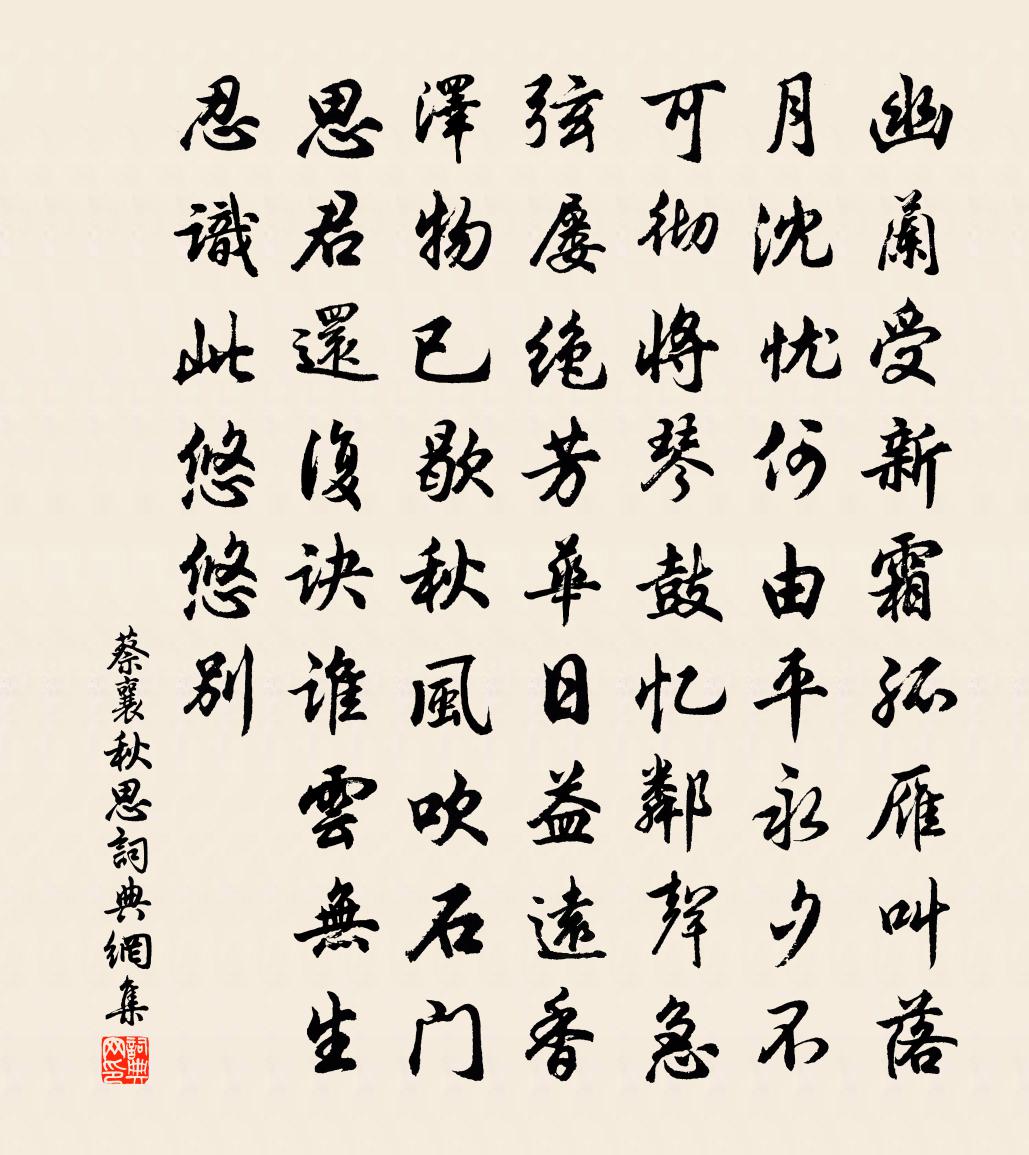 幽蘭受新霜孤雁叫落
月沈忧何由平永夕不
可彻將琴鼓忆鄰聲急
弦屡绝芳華日益遠香
澤物已歇秋風吹石门
思君還復诀谁雲無生
忍識此悠悠别
蔡襄秋思詞典網集
詞典网印